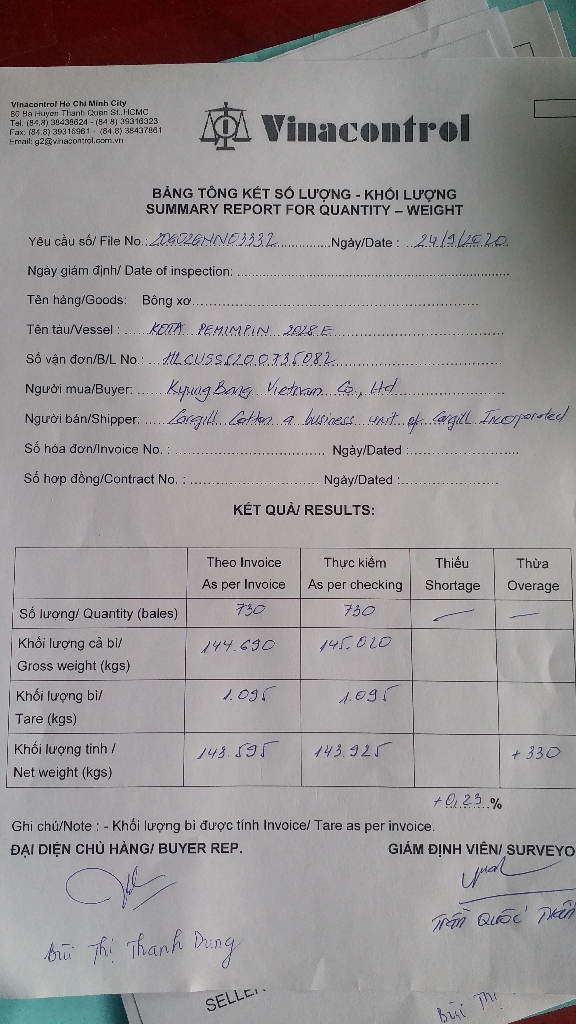 Vinacontrol Ho Chi Minh City
80 Ba Huyen Thanh Quan St., HCMC
Tel. (84.8) 38438624 - (84.8) 39316323
Fax: (84.8) 39316961 - (84.8) 38437861
Email: g2@vinacontrol.com.vn
Vinacontrol
BẢNG TỔNG KẾT SỐ LƯỢNG - KHỐI LƯỢNG
SUMMARY REPORT FOR QUANTITY – WEIGHT
Yêu cầu số/ File No.: 20G02GHN03332 Ngày/Date : 24/9/2020
Ngày giám định/ Date of inspection:
Tên hàng/Goods: Bông xơ
Tên tàu/Vessel : KOTA PEMIMPIN 2028E
Số vận đơn/B/L No.: HLCUSS5200735082
Người mua/Buyer: KyungBang Vietnam Co., Ltd
Người bán/Shipper: Cargill Cotton a business unit of Cargill Incorporated
Số hóa đơn/Invoice No. : Ngày/Dated :
Số hợp đồng/Contract No. : Ngày/Dated :
KẾT QUẢ/ RESULTS:
Theo Invoice Thực kiểm Thiếu Thừa
As per Invoice As per checking Shortage Overage
Số lượng/ Quantity (bales) 730 730 — —
Khối lượng cả bì/ 144.690 145.020
Gross weight (kgs)
Khối lượng bì/ 1.095 1.095
Tare (kgs)
Khối lượng tịnh / 143.595 143.925 +330
Net weight (kgs)
+0,23 %
Ghi chú/Note : - Khối lượng bì được tính Invoice/ Tare as per invoice.
ĐẠI DIỆN CHỦ HÀNG/ BUYER REP. GIÁM ĐỊNH VIÊN/ SURVEYO
Trần Quốc
Bùi Thị Thanh Dung
SELLER
Bùi Thị